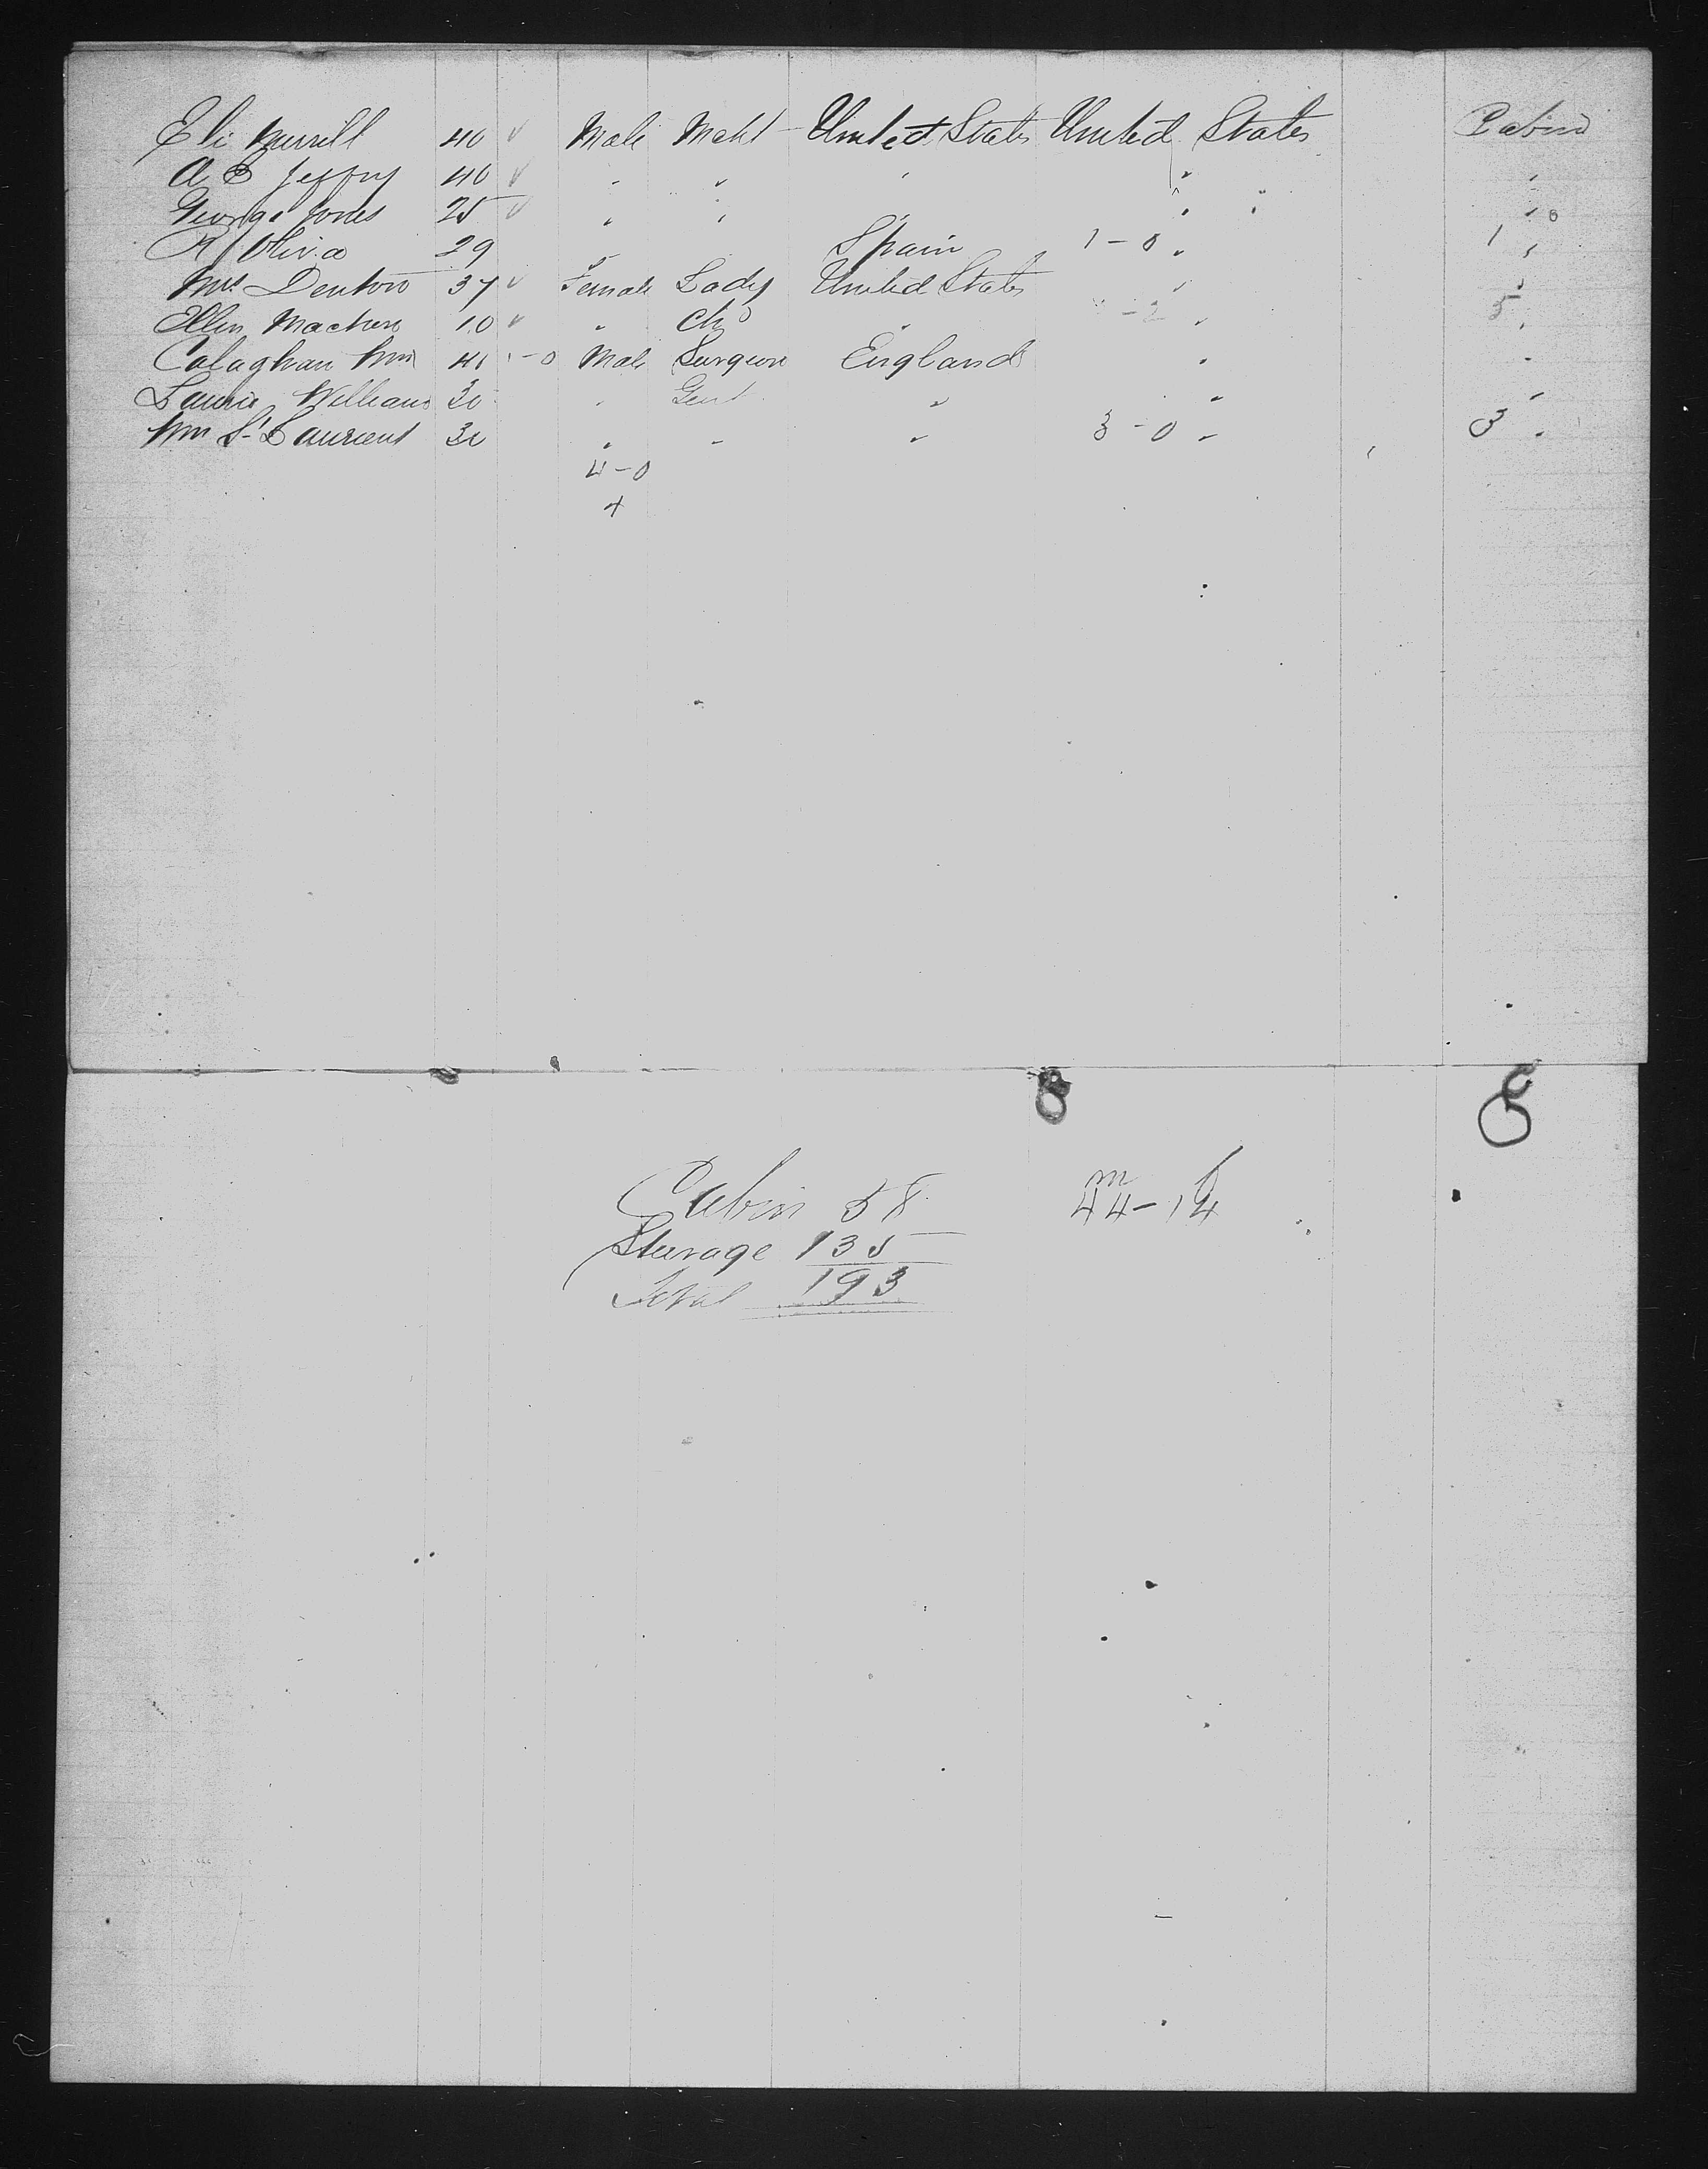 Eli Murrill 40 ✓ Male Mcht United States United States Cabin
A E Jeffry 40 ✓ " " " " "
George Jones 25 ✓ " " " " "
R Oliva 29 " Spain 1-0 " 1 "
Mrs Denton 37 ✓ Female Lady United States " "
Ellen 10 ✓ " Ch " -2 " 5 "
Calaghan Wm 40 -0 Male Surgeon England " "
William 30 " Gent " " "
Wm St Laurent 30 " " " 3-0 " 3 "
4-0
+
Cabin 58 m 44 - f 14
Steerage 135
Total 193